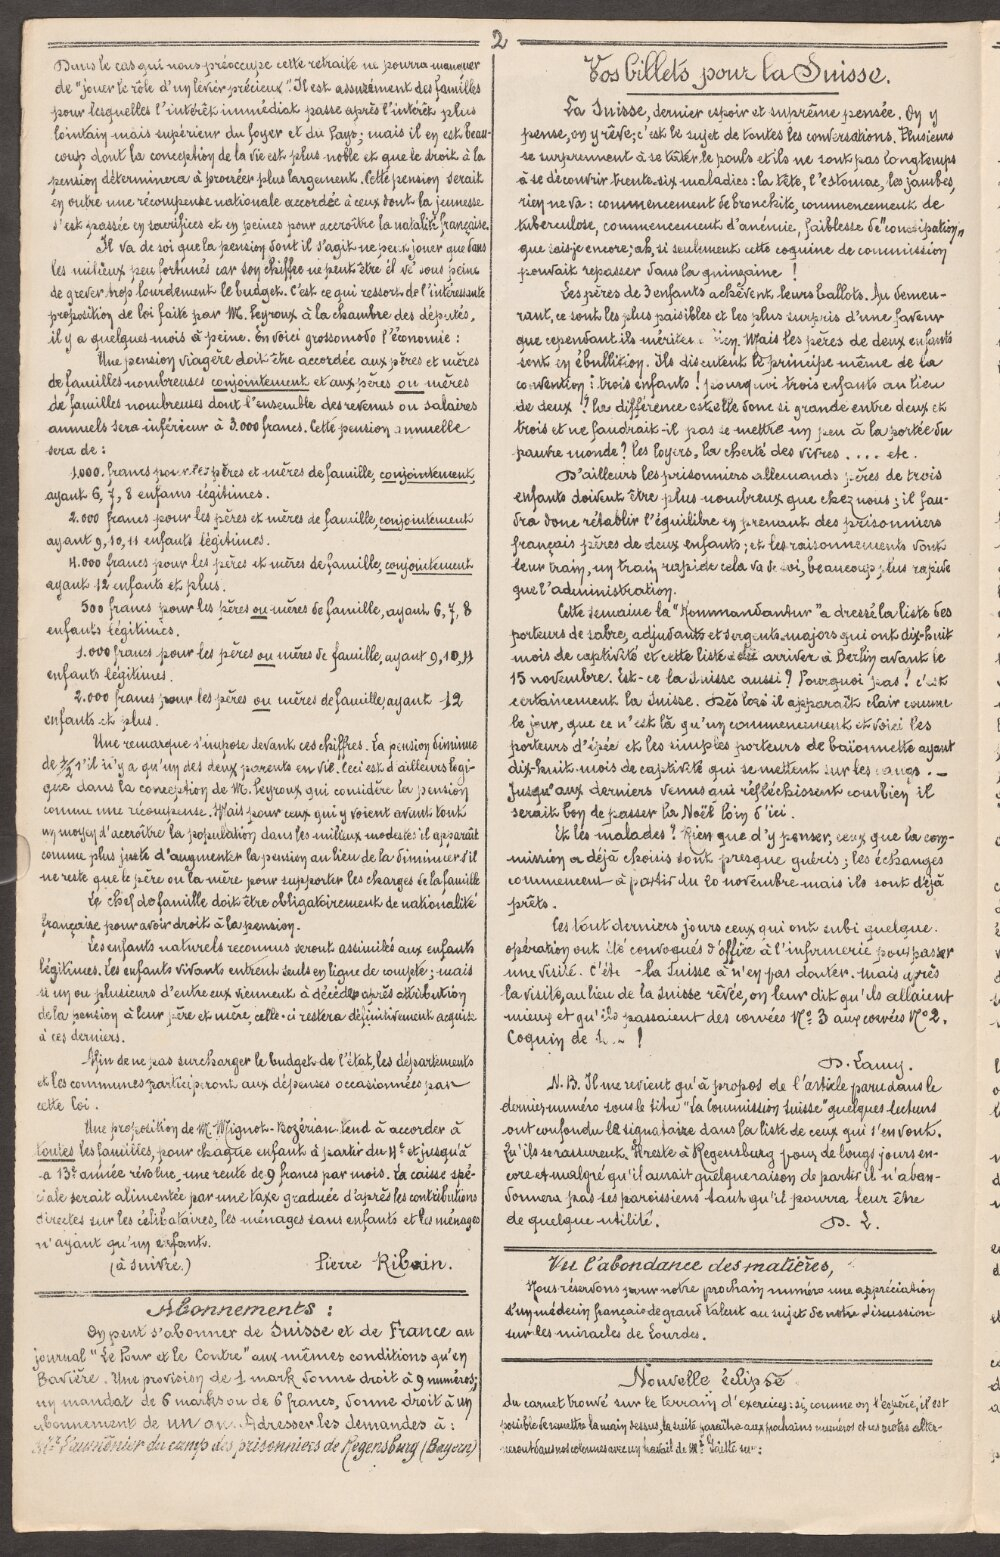 2
Dans le cas qui nous préoccupe cette retraite ne pourra manquer
de "jouer le rôle d'un levier précieux". Il est assurément des familles
pour lesquelles l'intérêt immédiat passe après l'intérêt plus
lointain mais supérieur du foyer et du Pays; mais il en est beau-
coup dont la conception de la vie est plus noble et que le droit à la
pension déterminera à procréer plus largement. Cette pension serait
en outre une récompense nationale accordée à ceux dont la jeunesse
s'est passée en sacrifices et en peines pour accroître la natalité française.
Il va de soi que la pension dont il s'agit ne peut jouer que dans
les milieux peu fortunés car son chiffre ne peut être élevé sous peine
de grever trop lourdement le budget. C'est ce qui ressort de l'intéressante
proposition de loi faite par M. Peyroux à la chambre des députés,
il y a quelques mois à peine. En voici grossomodo l'économie :
Une pension viagère doit être accordée aux pères et mères
de familles nombreuses conjointement et aux pères ou mères
de familles nombreuses dont l'ensemble des revenus ou salaires
annuels sera inférieur à 3.000 francs. Cette pension annuelle
sera de :
1.000. francs pour les pères et mères de famille, conjointement,
ayant 6, 7, 8 enfants légitimes.
2.000 francs pour les pères et mères de famille, conjointement
ayant 9, 10, 11 enfants légitimes.
4.000 francs pour les pères et mères de famille, conjointement
ayant 12 enfants et plus.
500 francs pour les pères ou mères de famille, ayant 6, 7, 8
enfants légitimes.
1.000 francs pour les pères ou mères de famille, ayant 9, 10, 11
enfants légitimes.
2.000 francs pour les pères ou mères de famille, ayant 12
enfants et plus.
Une remarque s'impose devant ces chiffres. La pension diminue
de 1/2 s'il n'y a qu'un des deux parents en vie. Ceci est d'ailleurs logi-
que dans la conception de M. Peyroux qui considère la pension
comme une récompense. Mais pour ceux qui y voient avant tout
un moyen d'accroître la population dans les milieux modestes il apparaît
comme plus juste d'augmenter la pension au lieu de la diminuer s'il
ne reste que le père ou la mère pour supporter les charges de la famille
Le chef de famille doit être obligatoirement de nationalité
française pour avoir droit à la pension.
Les enfants naturels reconnus seront assimilés aux enfants
légitimes. Les enfants vivants entrent seuls en ligne de compte; mais
si un ou plusieurs d'entre eux viennent à décéder après attribution
de la pension à leur père et mère, celle-ci restera définitivement acquise
à ces derniers.
Afin de ne pas surcharger le budget de l'état, les départements
et les communes participront aux dépenses occasionnées par
cette loi.
Une proposition de M. Mignot-Bozérian tend à accorder à
toutes les familles, pour chaque enfant à partir du 4e et jusqu'à
la 13e année révolue, une rente de 9 francs par mois. La caisse spé-
ciale serait alimentée par une taxe graduée d'après les contributions
directes sur les célibataires, les ménages sans enfants et les ménages
n'ayant qu'un enfant.
(à suivre.) Pierre Ribain.
Abonnements :
On peut s'abonner de Suisse et de France au
journal "Le Pour et le Contre" aux mêmes conditions qu'en
Bavière. Une provision de 1 mark donne droit à 9 numéros;
un mandat de 6 marks ou de 6 francs, donne droit à un
abonnement de un an. Adresser les demandes à :
Mr l'aumônier du camp des prisonniers de Regensburg (Bayern)
Vos billets pour la Suisse.
La Suisse, dernier espoir et suprême pensée. On y
pense, on y rêve; c'est le sujet de toutes les conversations. Plusieurs
se surprennent à se tâter le pouls et ils ne sont pas longtemps
à se découvrir trente-six maladies : la tête, l'estomac, les jambes,
rien ne va : commencement de bronchite, commencement de
tuberculose, commencement d'anémie, faiblesse de "constipation"
que sais-je encore; ah, si seulement cette coquine de commission
pouvait repasser dans la quinzaine !
Les pères de 3 enfants achèvent leurs ballots. Au demeu-
rant, ce sont les plus paisibles et les plus surpris d'une faveur
que cependant ils méritent bien. Mais les pères de deux enfants
sont en ébullition. Ils discutent le principe même de la
convention : trois enfants ! pourquoi trois enfants au lieu
de deux ? La différence est elle donc si grande entre deux et
trois et ne faudrait-il pas se mettre un peu à la portée du
pauvre monde ? les loyers, la cherté des vivres .... etc.
D'ailleurs les prisonniers allemands pères de trois
enfants doivent être plus nombreux que chez nous; il fau-
dra donc rétablir l'équilibre en prenant des prisonniers
français pères de deux enfants; et les raisonnements vont
leur train, un train rapide cela va de soi, beaucoup plus rapide
que l'administration.
Cette semaine la "Kommandantur" a dressé la liste des
porteurs de sabre, adjudants et sergents-majors qui ont dix-huit
mois de captivité et cette liste doit arriver à Berlin avant le
15 novembre. Est-ce la Suisse aussi ? Pourquoi pas ! c'est
certainement la Suisse. Dès lors il apparaît clair comme
le jour, que ce n'est là qu'un commencement et voici les
porteurs d'épée et les simples porteurs de baïonnette ayant
dix-huit mois de captivité qui se mettent sur les rangs. –
Jusqu'aux derniers venus qui réfléchissent combien il
serait bon de passer la Noël loin d'ici.
Et les malades ? Rien que d'y penser, ceux que la com-
mission a déjà choisis sont presque guéris; les échanges
commencent à partir du 20 novembre mais ils sont déjà
prêts.
Ces tout derniers jours ceux qui ont subi quelque
opération ont été convoqués d'office à l'infirmerie pour passer
une visite. C'ét la Suisse à n'en pas douter. mais après
la visite, au lieu de la Suisse rêvée, on leur dit qu'ils allaient
mieux et qu'ils passaient des corvées No 3 aux corvées No 2.
Coquin de !
D. Lamy.
N.B. Il me revient qu'à propos de l'article paru dans le
dernier numéro sous le titre "La Commission Suisse" quelques lecteurs
ont confondu le signataire dans la liste de ceux qui s'en vont.
Qu'ils se rassurent. Il reste à Regensburg pour de longs jours en-
core et malgré qu'il aurait quelque raison de partir il n'aban-
donnera pas ses paroissiens tant qu'il pourra leur être
de quelque utilité. D. L.
Vu l'abondance des matières,
Nous réservons pour notre prochain numéro une appréciation
d'un médecin français de grand talent au sujet de notre discussion
sur les miracles de Lourdes.
Nouvelle éclipse
du carnet trouvé sur le terrain d'exercices : si, comme on l'espère, il est
possible de remettre la main dessus, la suite paraîtra aux prochains numéros et ces notes alter-
neront dans nos colonnes avec un travail de Mr